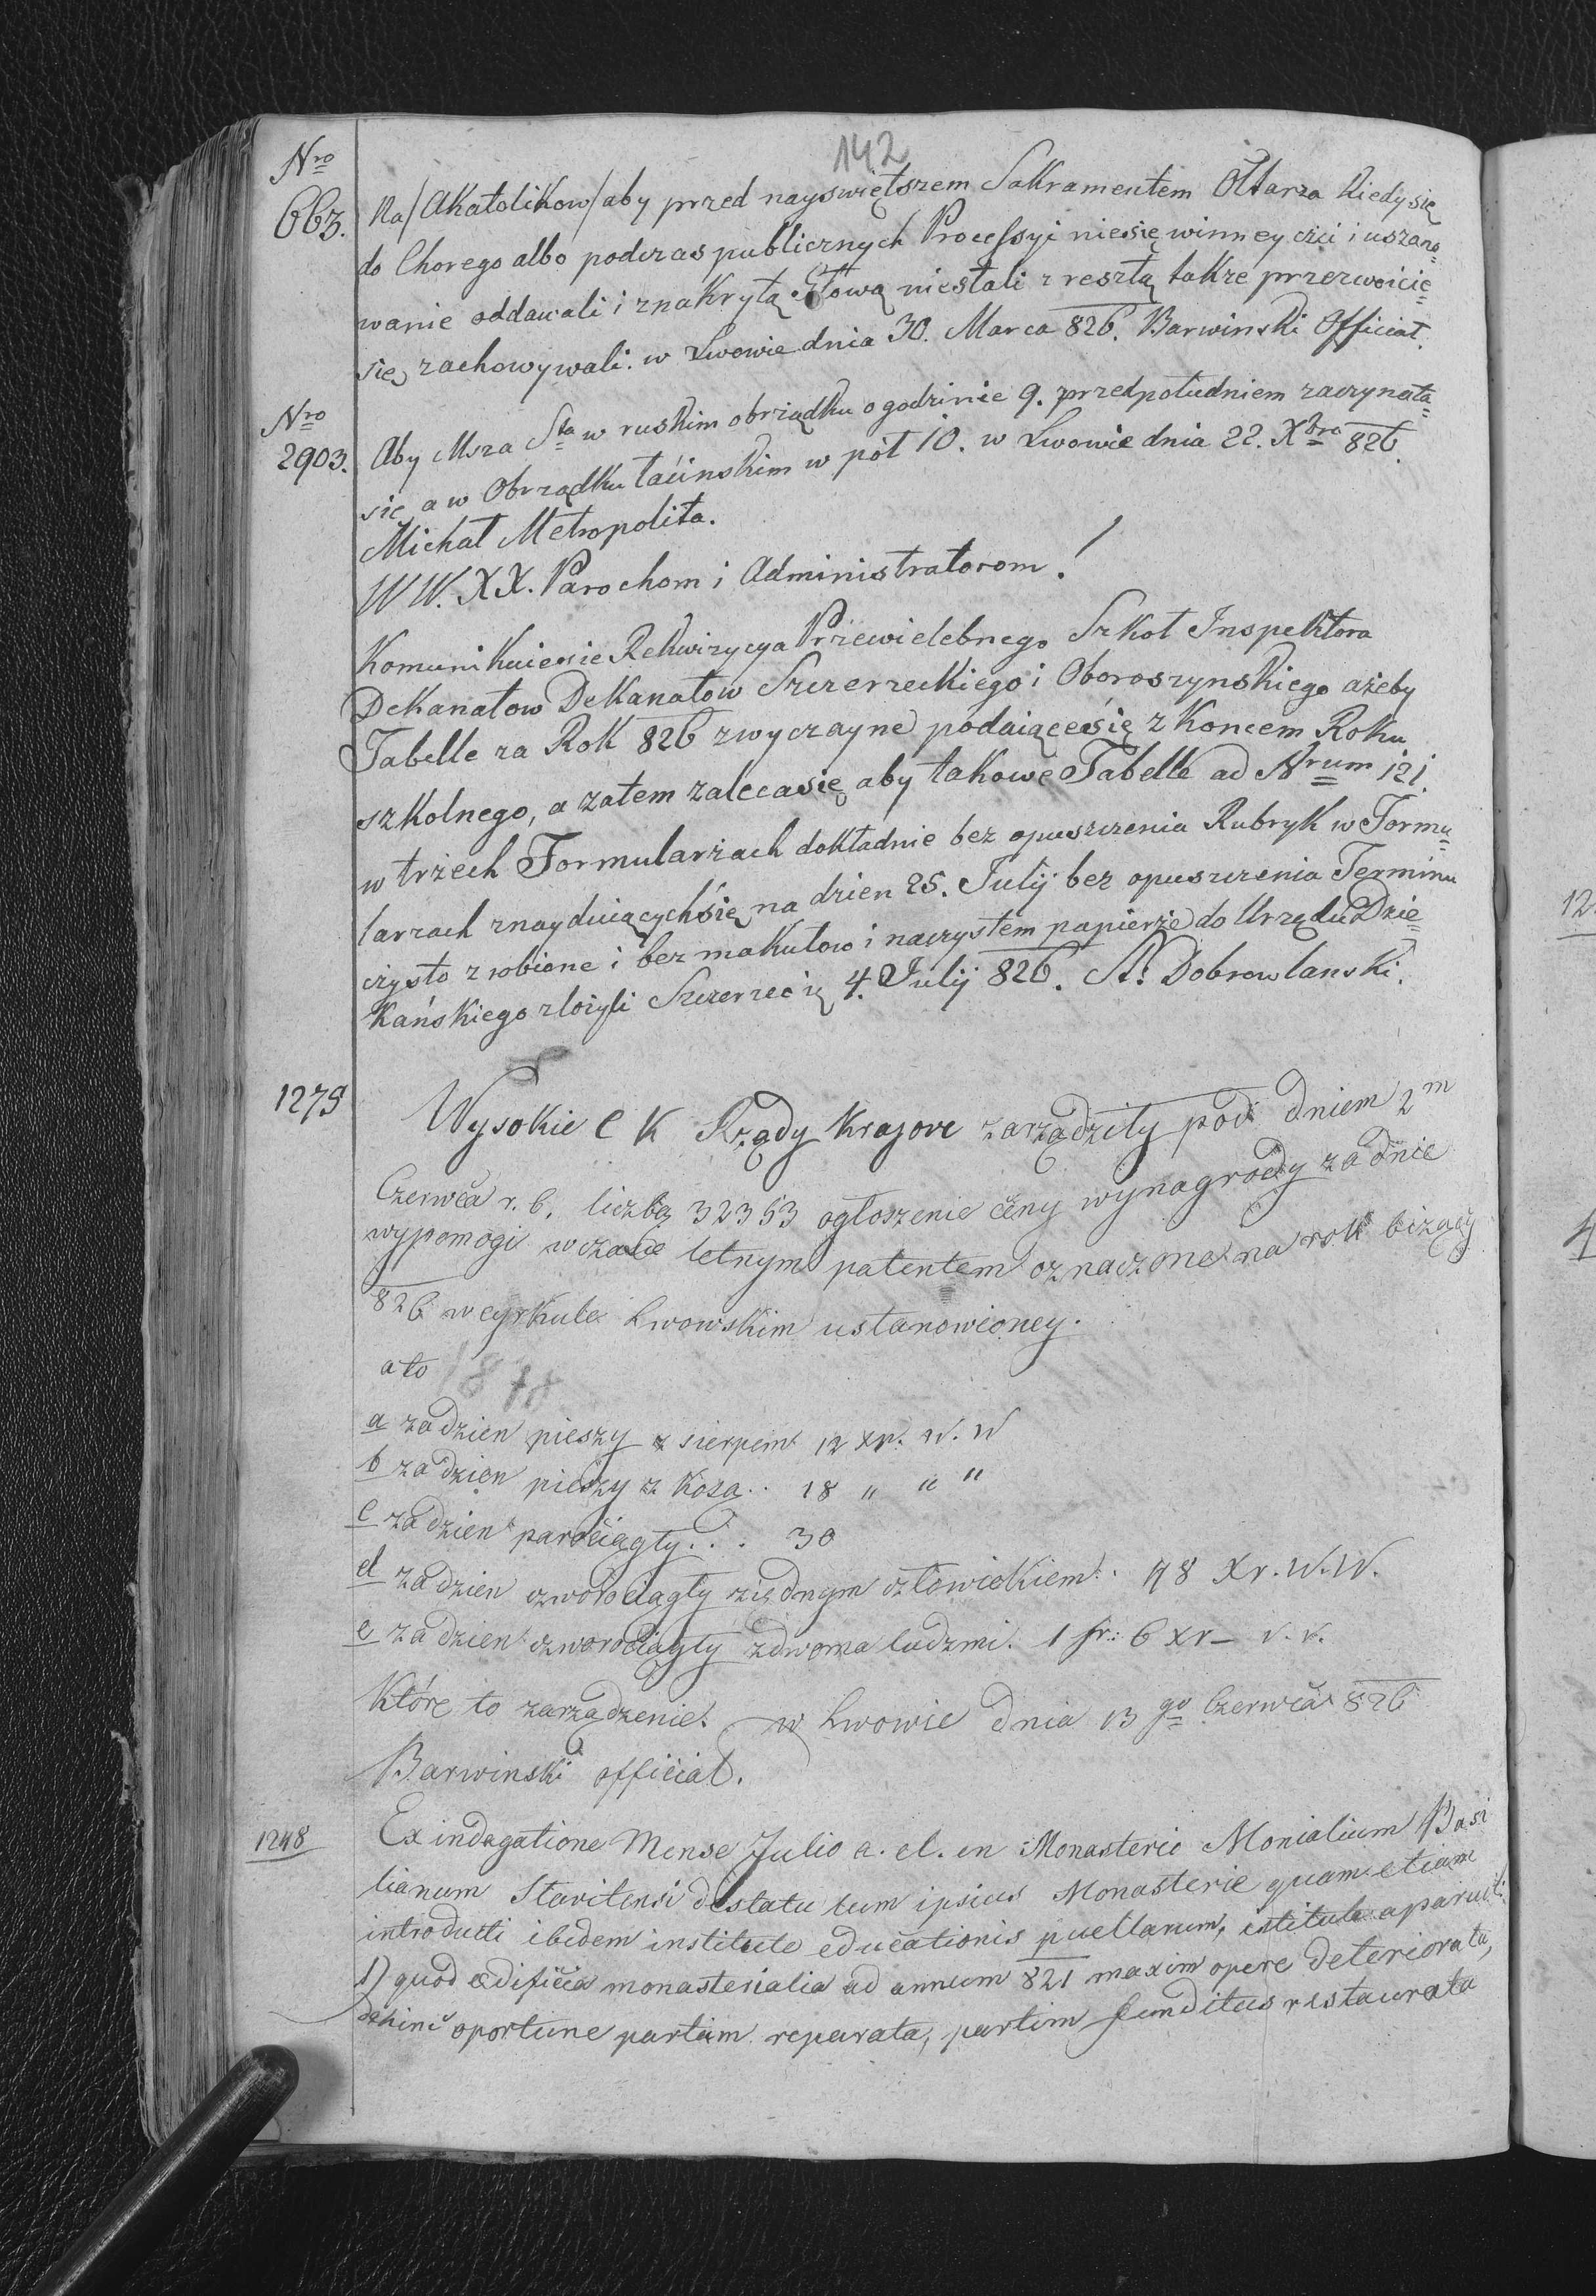 142
Nro
663. Na/Akatolikow/aby przed nayswiętszem Sakramentem Ołtarza kiedy się
do Chorego albo podczas publicznych Processyi niesię winney czci i uszano=
wanie oddawali i znakrytą Głową niestali z resztą takze przezwoicie=
się zachowywali. w Lwowie dnia 30. Marca 826. Barwinski Officiał.
Nro
2903. Aby Msza Sta w ruskim obrządku o godzinie 9. przedpołudniem zaczynała=
się a w Obrządku łacinskim w pół 10. w Lwowie dnia 22. Xbra 826.
Michał Metropolita.
W W. X X. Parochom i Administratorom!
Komunikuiesie Rekwizycya Przewielebnego Szkoł Inspektora
Dekanatow Dekanatow Szczerzeckiego i Oboroszynskiego ażeby
Tabelle za Rok 826 zwyczayne podaiącesię z koncem Roku
szkolnego, a zatem zalecasię aby takowe Tabelle ad Nrum 121.
w trzech Formularzach dokładnie bez opuszczenia Rubryk w Formu=
larzach znayduiącychsię na dzien 25. Julij bez opuszczenia Terminu
czysto zrobione i bez makułow i naczystem papierze do Urzędu Dzie=
kańskiego złożyli Szczerzec 4. Julij 826. A. Dobrowlanski.
1279 Wysokie C K Rządy krajowe zarządziły pod dniem 2m
Czerwca r. b. liczbą 32353 ogłoszenie ceny wynagrody za dnie
wypomogi wczasie letnym patentem oznaczone na rok bizący
826 w cyrkule Lwowskim ustanowioney.
ato
a za dzien pieszy z sierpem 12 xr. W. W
b za dzien pieszy z kosa .. 18 " " "
c za dzien parociągły... 30
d za dzien czworociągły ziednym człowiekiem. 48 Xr. W. W.
e za dzien czworociągły zdwoma ludzmi. 1 fr: 6 xr– v. v.
Które to zarządzenie. w Lwowie dnia 13 go Czerwca 826
Barwinski official.
1248 Ex indagatione Mense Julio a. el. in Monasterio Monialium Basi
lianum Stavitensi destatu tum ipsius Monasterie quam etiam
introducti ibidem institute educationis puellarum, aparuit
1) quod ædificia monasterialia ad annum 821 maxim opere deteriorata,
oportune partim reparata, partim funditus restaurata